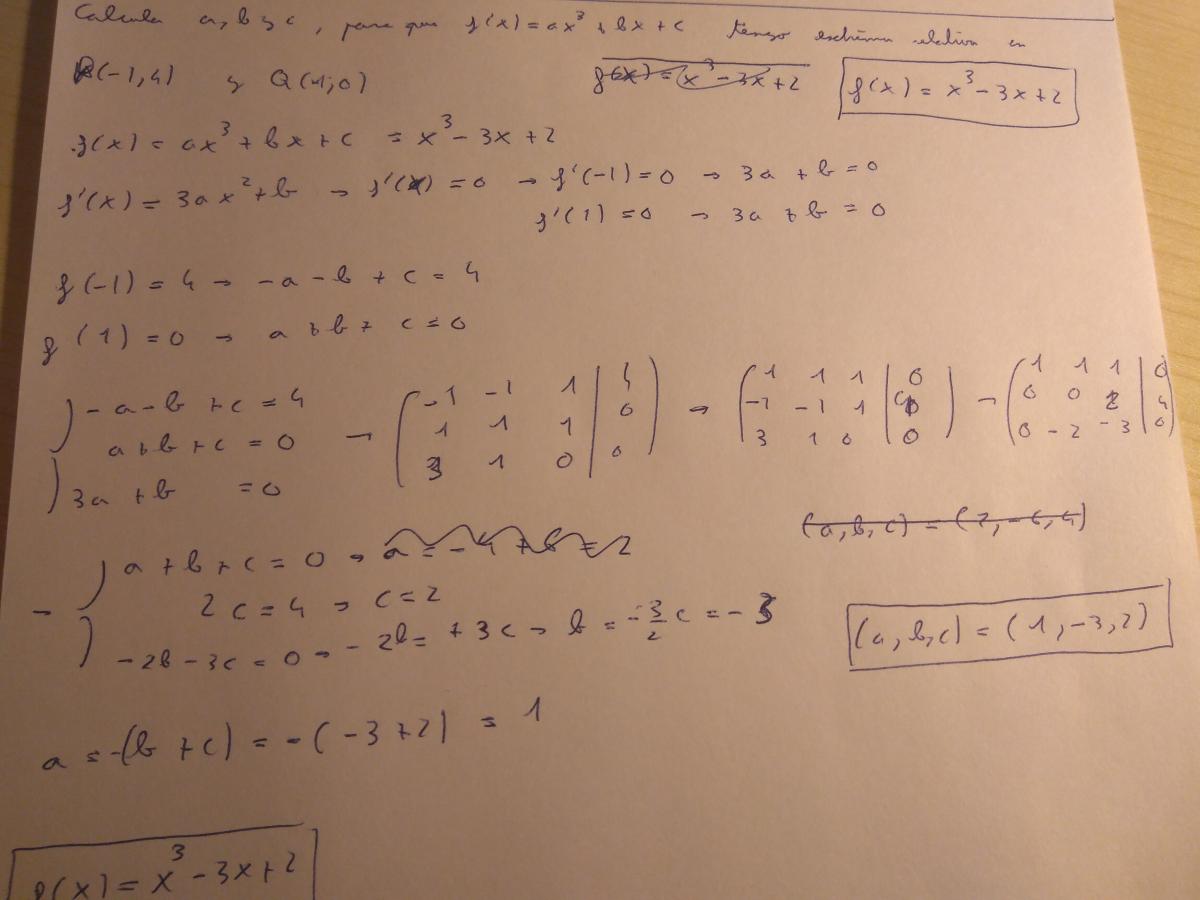 Calcula a, b y c, para que f(x) = ax³ + bx + c tenga extremos relativos en
P(-1,4) y Q(1,0) f(x) = x³ - 3x + 2 f(x) = x³ - 3x + 2
f(x) = ax³ + bx + c = x³ - 3x + 2
f'(x) = 3ax² + b → f'(x) = 0 → f'(-1) = 0 → 3a + b = 0
f'(1) = 0 → 3a + b = 0
f(-1) = 4 → -a - b + c = 4
f(1) = 0 → a + b + c = 0
-a - b + c = 4
a + b + c = 0
3a + b = 0
→ ( -1 -1 1 | 4 ) → ( 1 1 1 | 0 ) → ( 1 1 1 | 0 )
( 1 1 1 | 0 ) ( -1 -1 1 | 4 ) ( 0 0 2 | 4 )
( 3 1 0 | 0 ) ( 3 1 0 | 0 ) ( 0 -2 -3 | 0 )
(a, b, c) = (2, -6, 4)
→ a + b + c = 0 → a = -4 + 6 = 2
2c = 4 → c = 2
-2b - 3c = 0 → -2b = +3c → b = -3/2 c = -3
(a, b, c) = (1, -3, 2)
a = -(b + c) = -(-3 + 2) = 1
f(x) = x³ - 3x + 2